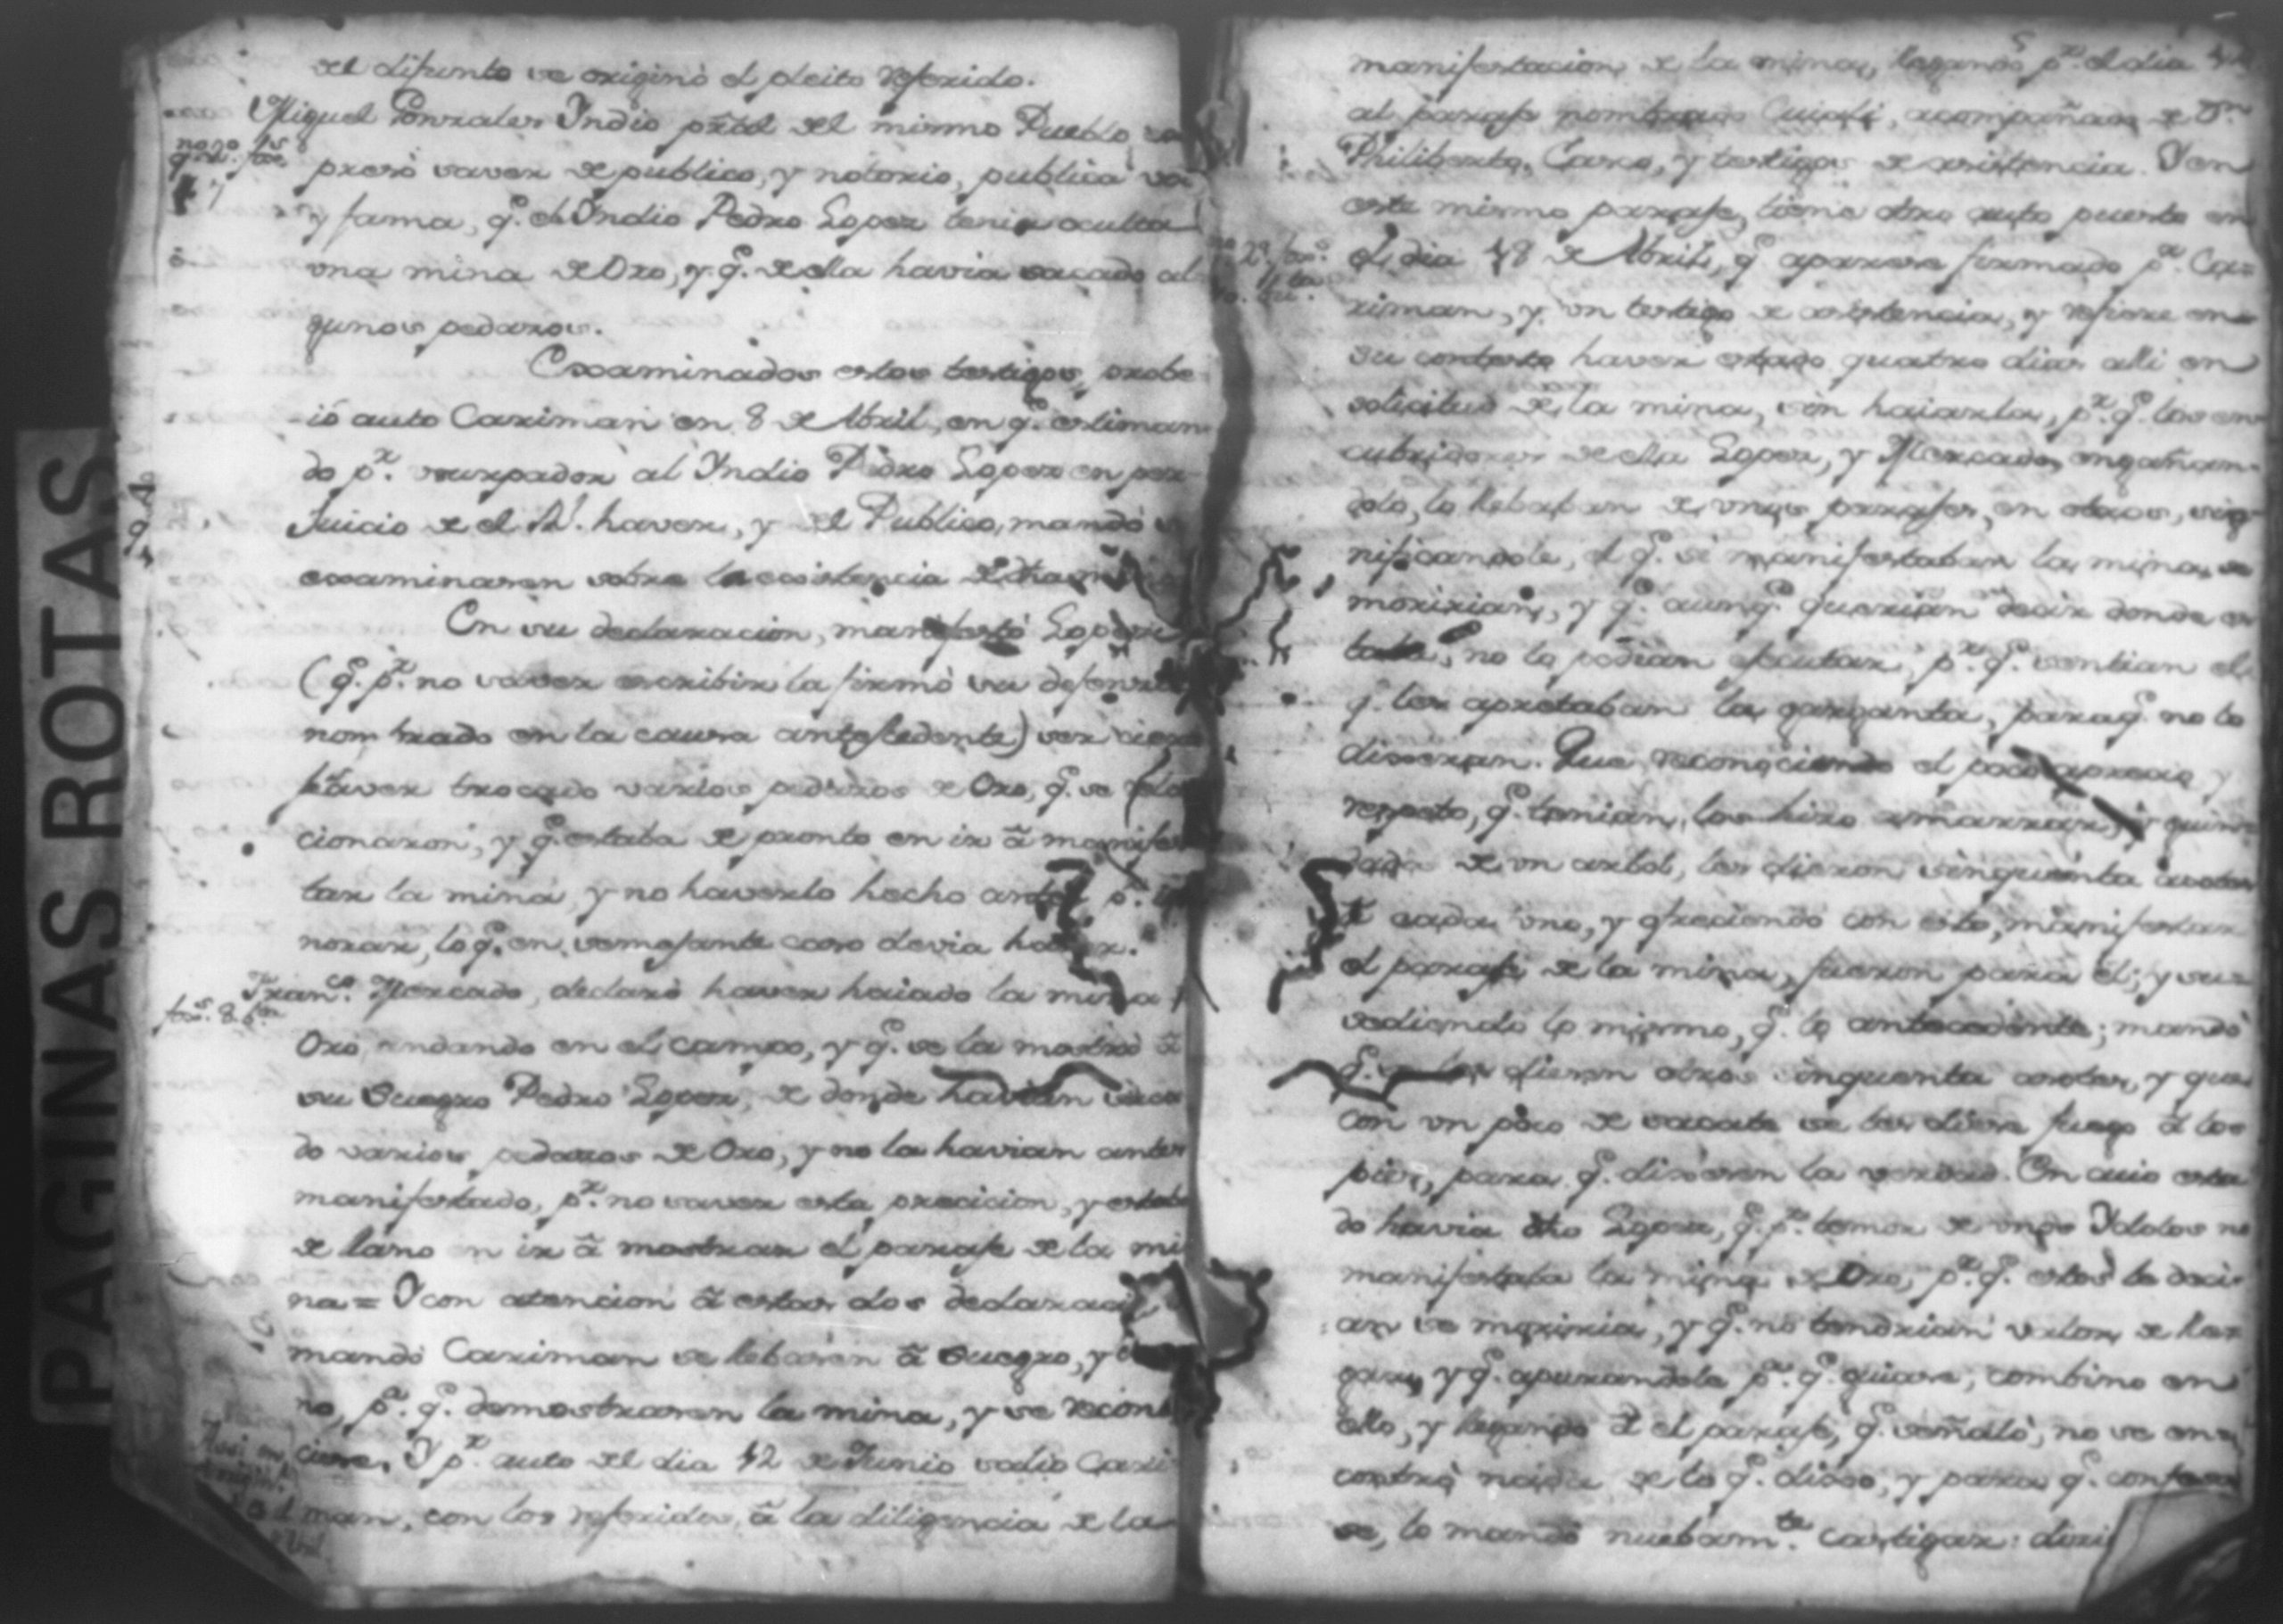 PAGINAS ROTAS
el difunto se originó el pleito referido.
Miguel Gonzales Yndio prãl del mismo Pueblo
presó saver de publico, y notorio, publica vo
y fama, q.e el Yndio Pedro Lopez tenia oculta
una mina de Oro, y q.e de ella havia sacado al
gunos pedazos.
Examinados estos testigos, probe
ió auto Cariman en 8 de Abril, en q.e estiman
do p.r usurpador al Yndio Pedro Lopez en per
juicio de el R.l haver, y del Publico, mandó
examinaren sobre la existencia de
En su declaracion, manifestó Lopez
(q.e p.r no saver escribir la firmó su defensor
nombrado en la causa antesedente) ser cierto
haver trocado varios pedazos de Oro, q.e se rela
cionaron, y q.e estaba de pronto en ir â manifes
tar la mina, y no haverlo hecho antes p.r ig
norar, lo q.e en semejante caso devia hacer.
Fran.co Mercado, declaró haver haiado la mina
Oro, andando en el campo, y q.e se la mostró â
su Suegro Pedro Lopez, de donde havian saca
do varios pedazos de Oro, y no la havian antes
manifestado, p.r no saver esta precicion, y estaba
de llano en ir â mostrar el paraje de la mi
na = Y con atencion â estas dos declaracio
mandó Cariman se llebasen â Suegro, y
no, p.a q.e demostrasen la mina, y se recono
ciese. Y p.r auto del dia 12 de Junio salió Cari
man, con los referidos, â la diligencia de la
manifestacion de la mina, llegando p.r el dia
al paraje nombrado acompañado de D.n
Philiberto, Carco, y testigos de asistencia. Y en
este mismo paraje, tiene otro auto puesto en
el dia 18 de Abril, q.e aparese firmado p.r Ca=
riman, y un testigo de asistencia, y refiere en
su contesto haver estado quatro dias alli en
solicitud de la mina, sin haiarla, p.r q.e los en
cubridores de ella Lopez, y Mercado, engañan
dolo, lo llebaban de unos parajes, en otros, sig
nificandole, el q.e si manifestaban la mina, se
moririan, y q.e aunq.e querian decir donde es
taba, no lo podian ejecutar, p.r q.e sentian el
q.e les apretaban la garganta, para q.e no lo
dixeran. Que reconociendo el poco aprecio, y
respeto, q.e tenian, los hizo amarrar, y guin
dados de un arbol, les dieron sinquenta asotes
â cada uno, y ofreciendo con esto, manifestar
el paraje de la mina, fueron para él; y suc
sediendo lo mismo, q.e lo antecedente; mandó
q.e se les diesen otros sinquenta asotes, y que
con un poco de sacate se les diera fuego â los
pies, para q.e dixesen la verdad. En cuio esta
do havia dho Lopez, q.e p.r temor de unos Ydolos no
manifestaba la mina de Oro, p.r q.e estos le deci
an se moriria, y q.e no tendrian valor de lle
gar, y q.e apurandole p.a q.e guiase, combino en
ello, y llegando â el paraje, q.e señaló, no se en
contró nada de lo q.e dixo, y para q.e confesa
se, lo mandó nuebam.te castigar: